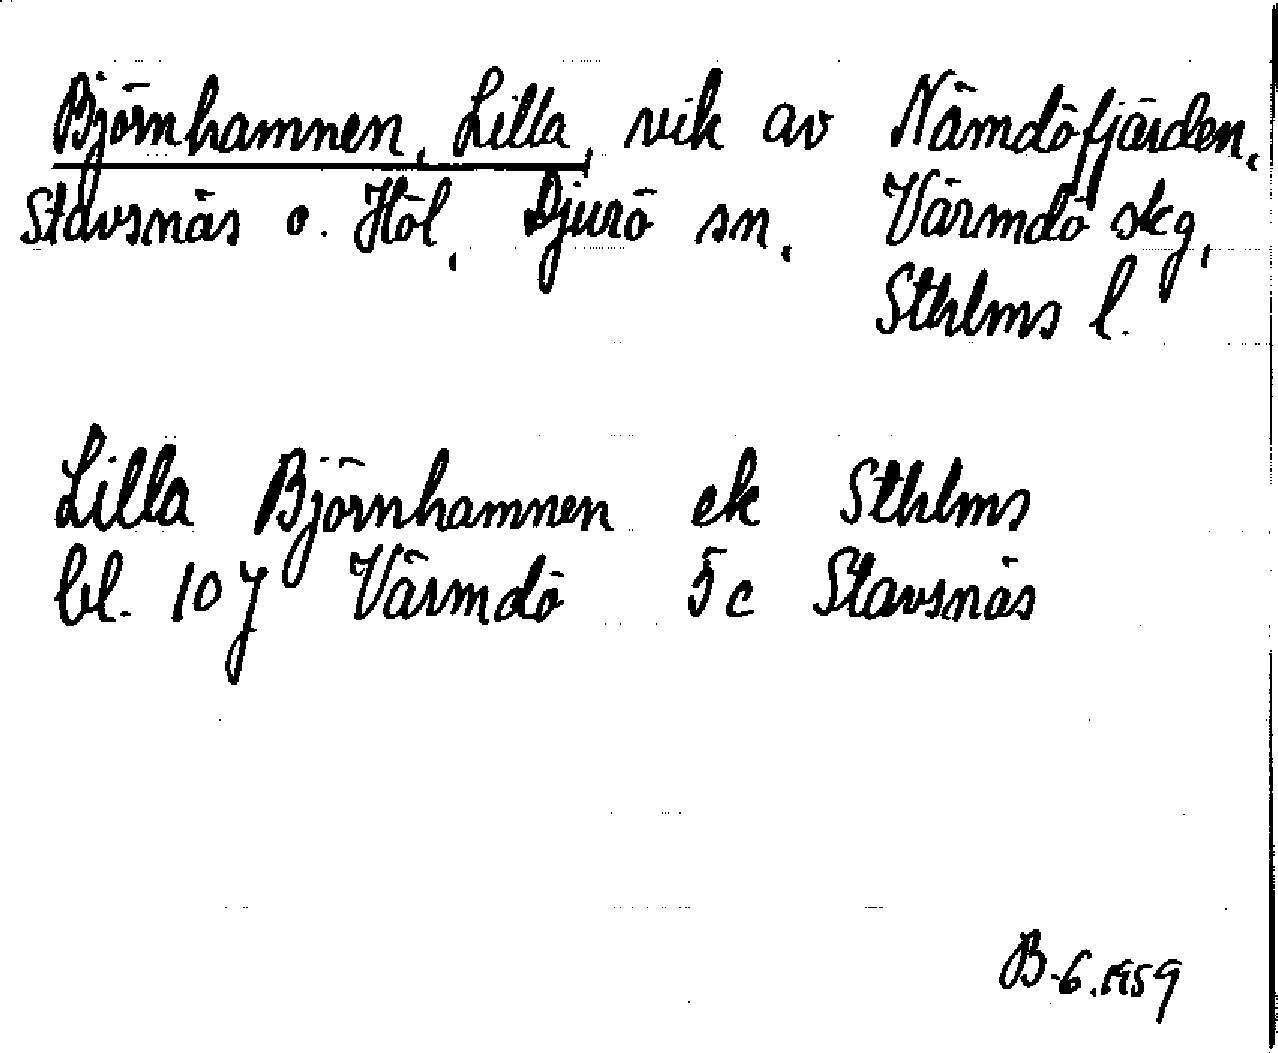 Björnhamnen, Lilla, vik av Nämdöfjärden,
Stavsnäs o. Höl, Djurö sn, Värmdö skg,
Sthlms l.
Lilla Björnhamnen ek Sthlms
bl. 10 J Värmdö 5c Stavsnäs
B-6.1959